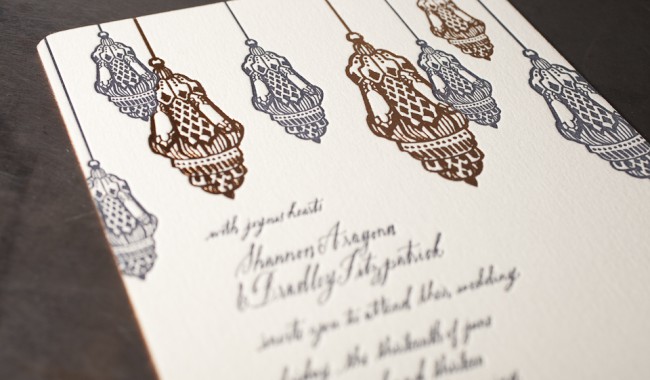 with joyous hearts
Shannon Aragona
& Bradley Fitzpatrick
invite you to attend their wedding
the thirteenth of june
and thirteen